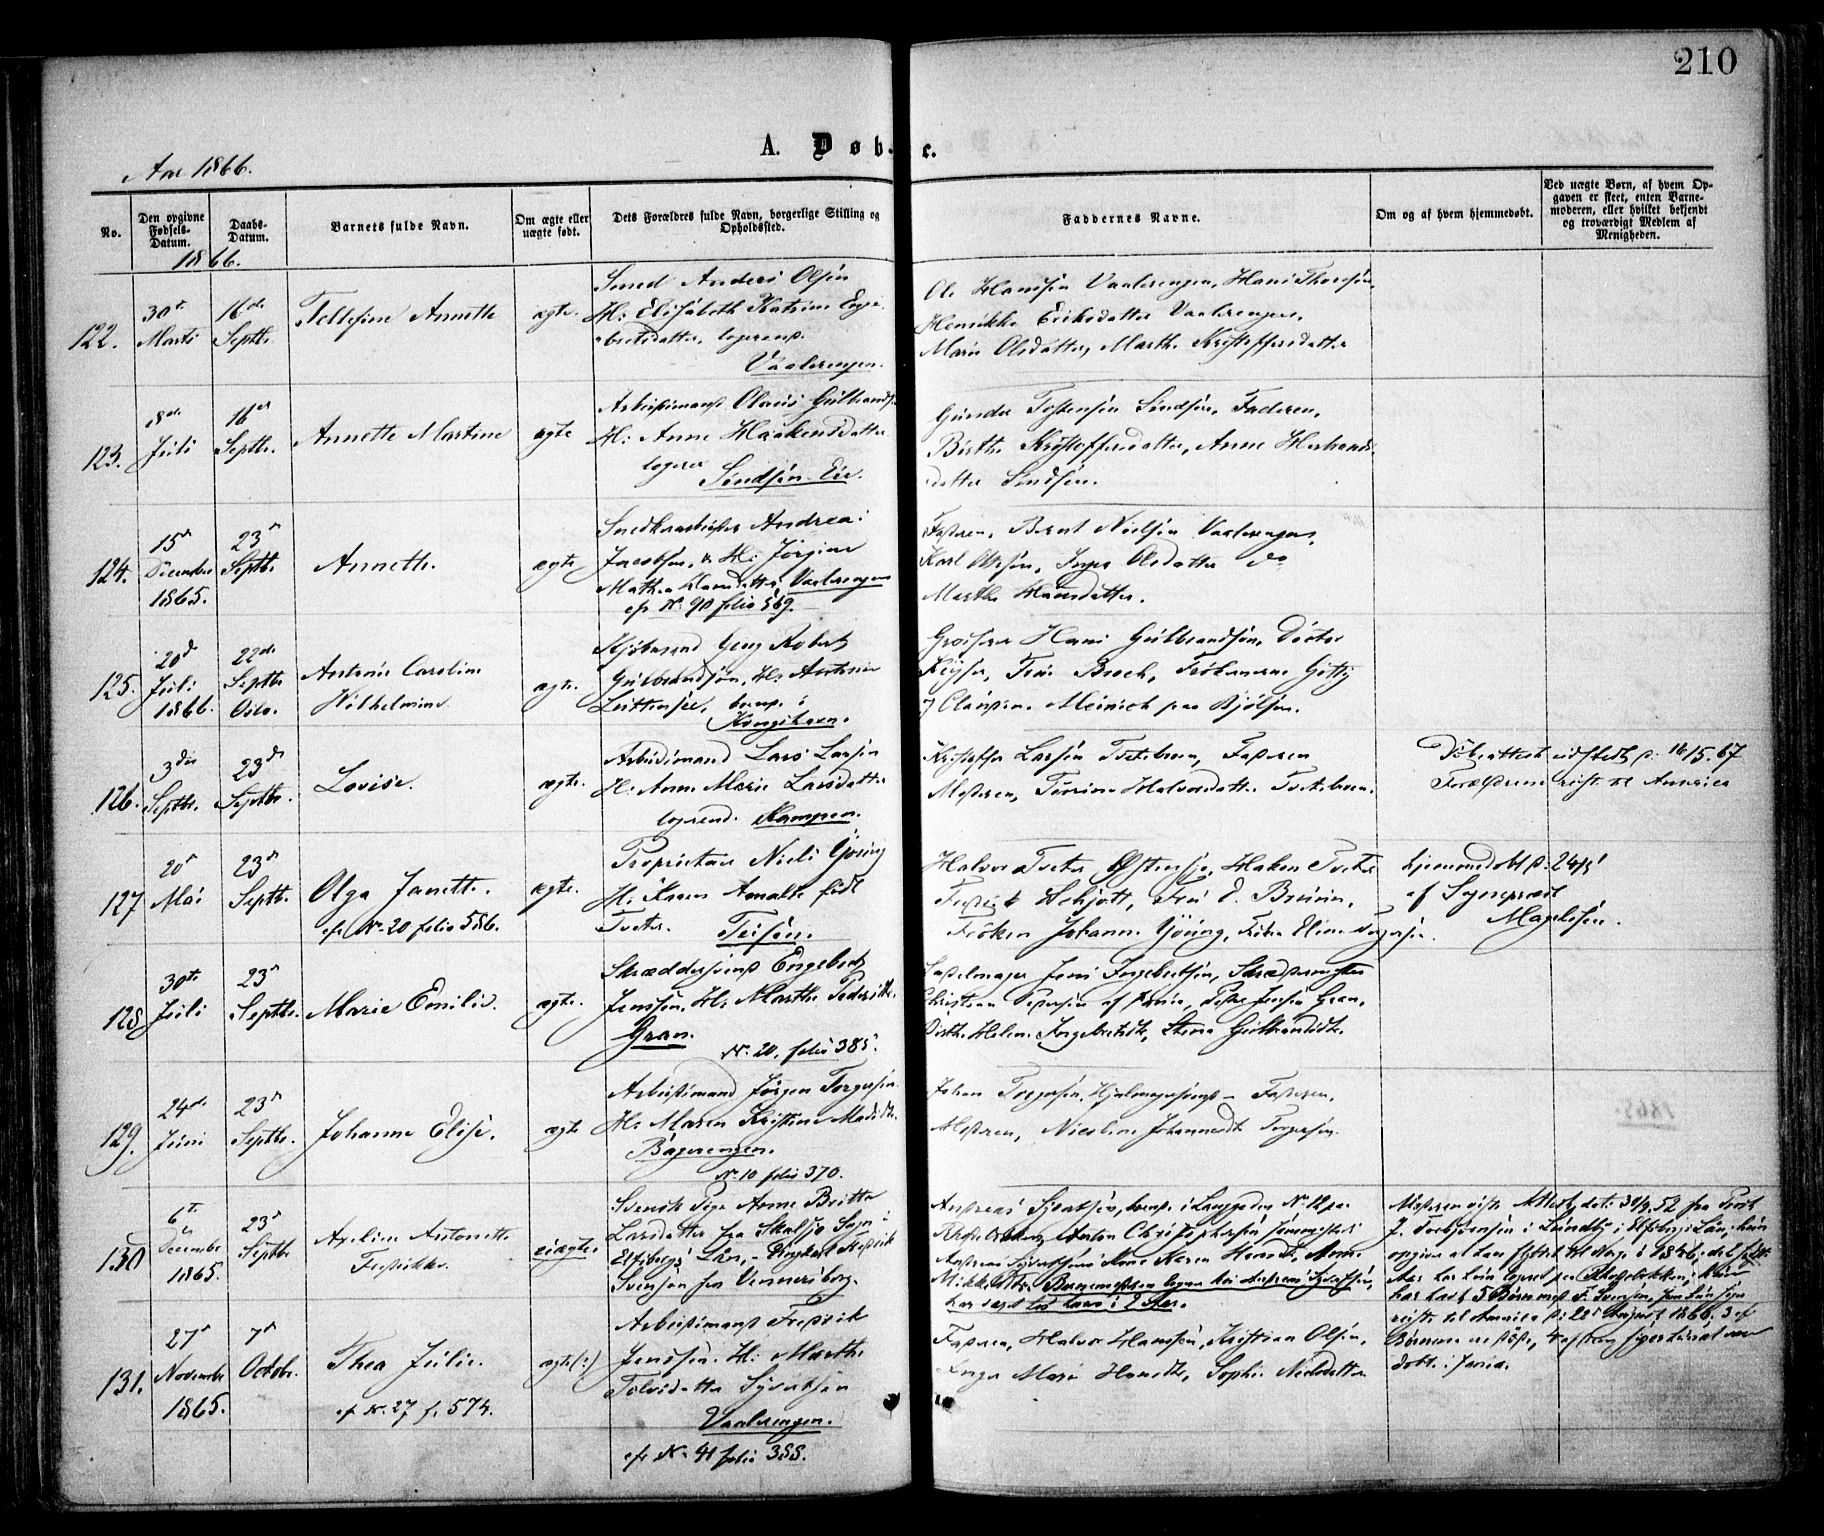 210
A. Døbte.
Aar 1866.
No.
Den opgivne Fødsels-Datum.
Daabs-Datum.
Barnets fulde Navn.
Om ægte eller uægte født.
Dets Forældres fulde Navn, borgerlige Stilling og Opholdssted.
Faddernes Navne.
Om og af hvem hjemmedøbt.
Ved uægte Børn, af hvem Opgaven er skeet, enten Barnemoderen, eller hvilket bekjendt og troværdigt Medlem af Menigheden.
1866.
122.
30te Marts
16de Septbr.
Tellefine Annette
ægte.
Smed Anders Olsen
H: Elisabeth Katrine Enge-
bretsdatter, logerend.
Vaalerengen.
Ole Hansen Vaalerengen, Hans Thoresen,
Henrikke Eriksdatter Vaalerengen,
Marie Olsdatter, Marthe Kristoffersdatter
123.
8de Juli
16de Septbr.
Annette Martine
ægte
Arbeidsmand Olaus Gulbrands.
H: Anne Haakensdatter
logerer
Sindsen Eie.
Gunder Torstensen Sindsen, Faderen,
Birthe Kristoffersdatter, Anne
datter Sindsen.
124.
15de December 1865.
23de Septbr
Annethe.
ægte.
Snedkerarbeider Andreas
Jacobsen, & H: Jørgine
Mathea Hansdatter, Vaalerengen
cfr No. 90 folio 569.
Faderen, Bernt Nielsen Vaalerengen,
Karl Olsen, Inger Olsdatter do
Marthe Hansdatter.
125.
20de Juli 1866.
22de Septbr Oslo.
Antonie Caroline
Wilhelmine
ægte.
Kjøbmand Georg Robert
Gulbrandsen, H: Antonie
boende i
Kongshavn.
Grosserer Hans Gulbrandsen, Doctor
Keyser, Fru Broch, Frøknerne Gitty
& Clausine Meinich paa Bjølsen.
126.
3die Septbr.
23de Septbr.
Lovise.
ægte.
Arbeidsmand Lars Larsen
H: Anne Marie Larsdatter
logerend. Kampen.
Kristoffer Larsen Tvetebroen, Faderen
Moderen, Halvorsdatter Tvetebroen.
Døbeattest udstedt d: 16/5.67
Forældrene reist til America
127.
20de Mai
23de Septbr.
Olga Janette.
cfr No. 20 folio 586.
ægte.
Proprietair Niels Young
H: Karen Amalie født
Tveter.
Teisen.
Halvor Tveter Østensjø, Haken Tveter
Fredrik Schjøtt, Fru d. Bruun,
Frøken Johanne Young, Frøken Eline Torgersen.
hjemmedøbt d: 24/5
af Sognepræst
Magelssen.
128
30te Juli
23de Septbr.
Marie Emilie.
ægte.
Skræddersvend Engebret
Jenssen, H: Marthe Pedersdtr.
Gran.
No. 20, folio 385.
Sadelmager Jens Ingebretsen, Skrædermester
Christian Pedersen af Peder Jensen Gran,
Dorthe Helene Ingebretsdtr, Stena Gulbrandsdt.
129.
24de Juni
23de Septbr.
Johanne Elise.
ægte
Arbeidsmand Jørgen Torgersen
H: Maren Kristine
Bøgerengen.
No. 10 folio 370.
Johan Torgersen, Faderen,
Moderen, Nicoline Johannesdt Torgersen.
130
6te December 1865.
23de Septbr
Axeline Antonette
Fredrikke.
uægte.
Svensk Pige Anne Britta
Larsdatter fra Sogn i
Elfsborgs Län, – Fredrik
Svensen fra Vennersborg.
Andreas Syvertsen, boende i Langgaden No. 12 paa
Anton Christophersen
Andreas Syvertsens Kone Karen Hansdt, Anne
Mikkelsdtr. Barnemoderen logerer hos Andreas Syvertsen,
har været hos ham i 2 Aar.
Moderen viste Attest, dat: 30/9.52 fra Prost
J. Torbjørnsen i Lundby i Elfsborgs Län; hun
opgiver at have flyttet til Norge i 1846;
Aar har hun logeret paa hun
har havt 5 Børn med F. Svensen,
reiste til America d: 22de August 1866. 3 af
Børnene ere døde,
døbte i
131.
27de November 1865.
7de Octobr.
Thea Julie.
cfr No. 27 f. 574.
ægte(:)
Arbeidsmand Fredrik
Jenssen. H: Marthe
Tolvsdatter Syvertsen
Vaalerengen.
cfr No. 41 folio 388.
Faderen, Halvor Hansen, Kristian Olsen,
Inger Marie Hansdt, Sophie Nielsdatter